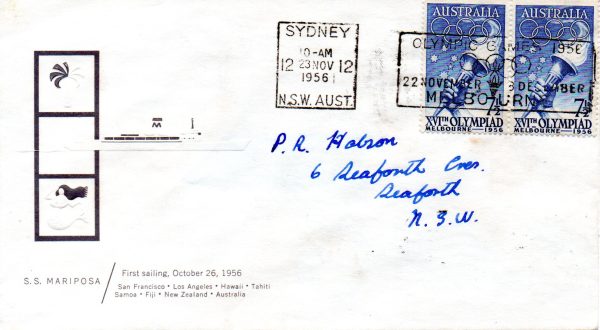 SYDNEY
10-AM
12 23 NOV 12
1956
N.S.W. AUST.
OLYMPIC GAMES 1956
22 NOVEMBER 8 DECEMBER
MELBOURNE
AUSTRALIA
7½
XVITH OLYMPIAD
MELBOURNE 1956
AUSTRALIA
7½
XVITH OLYMPIAD
MELBOURNE 1956
M
P. R. Hobson
6 Seaforth Cres.
Seaforth
N.S.W.
S.S. MARIPOSA
First sailing, October 26, 1956
San Francisco • Los Angeles • Hawaii • Tahiti
Samoa • Fiji • New Zealand • Australia